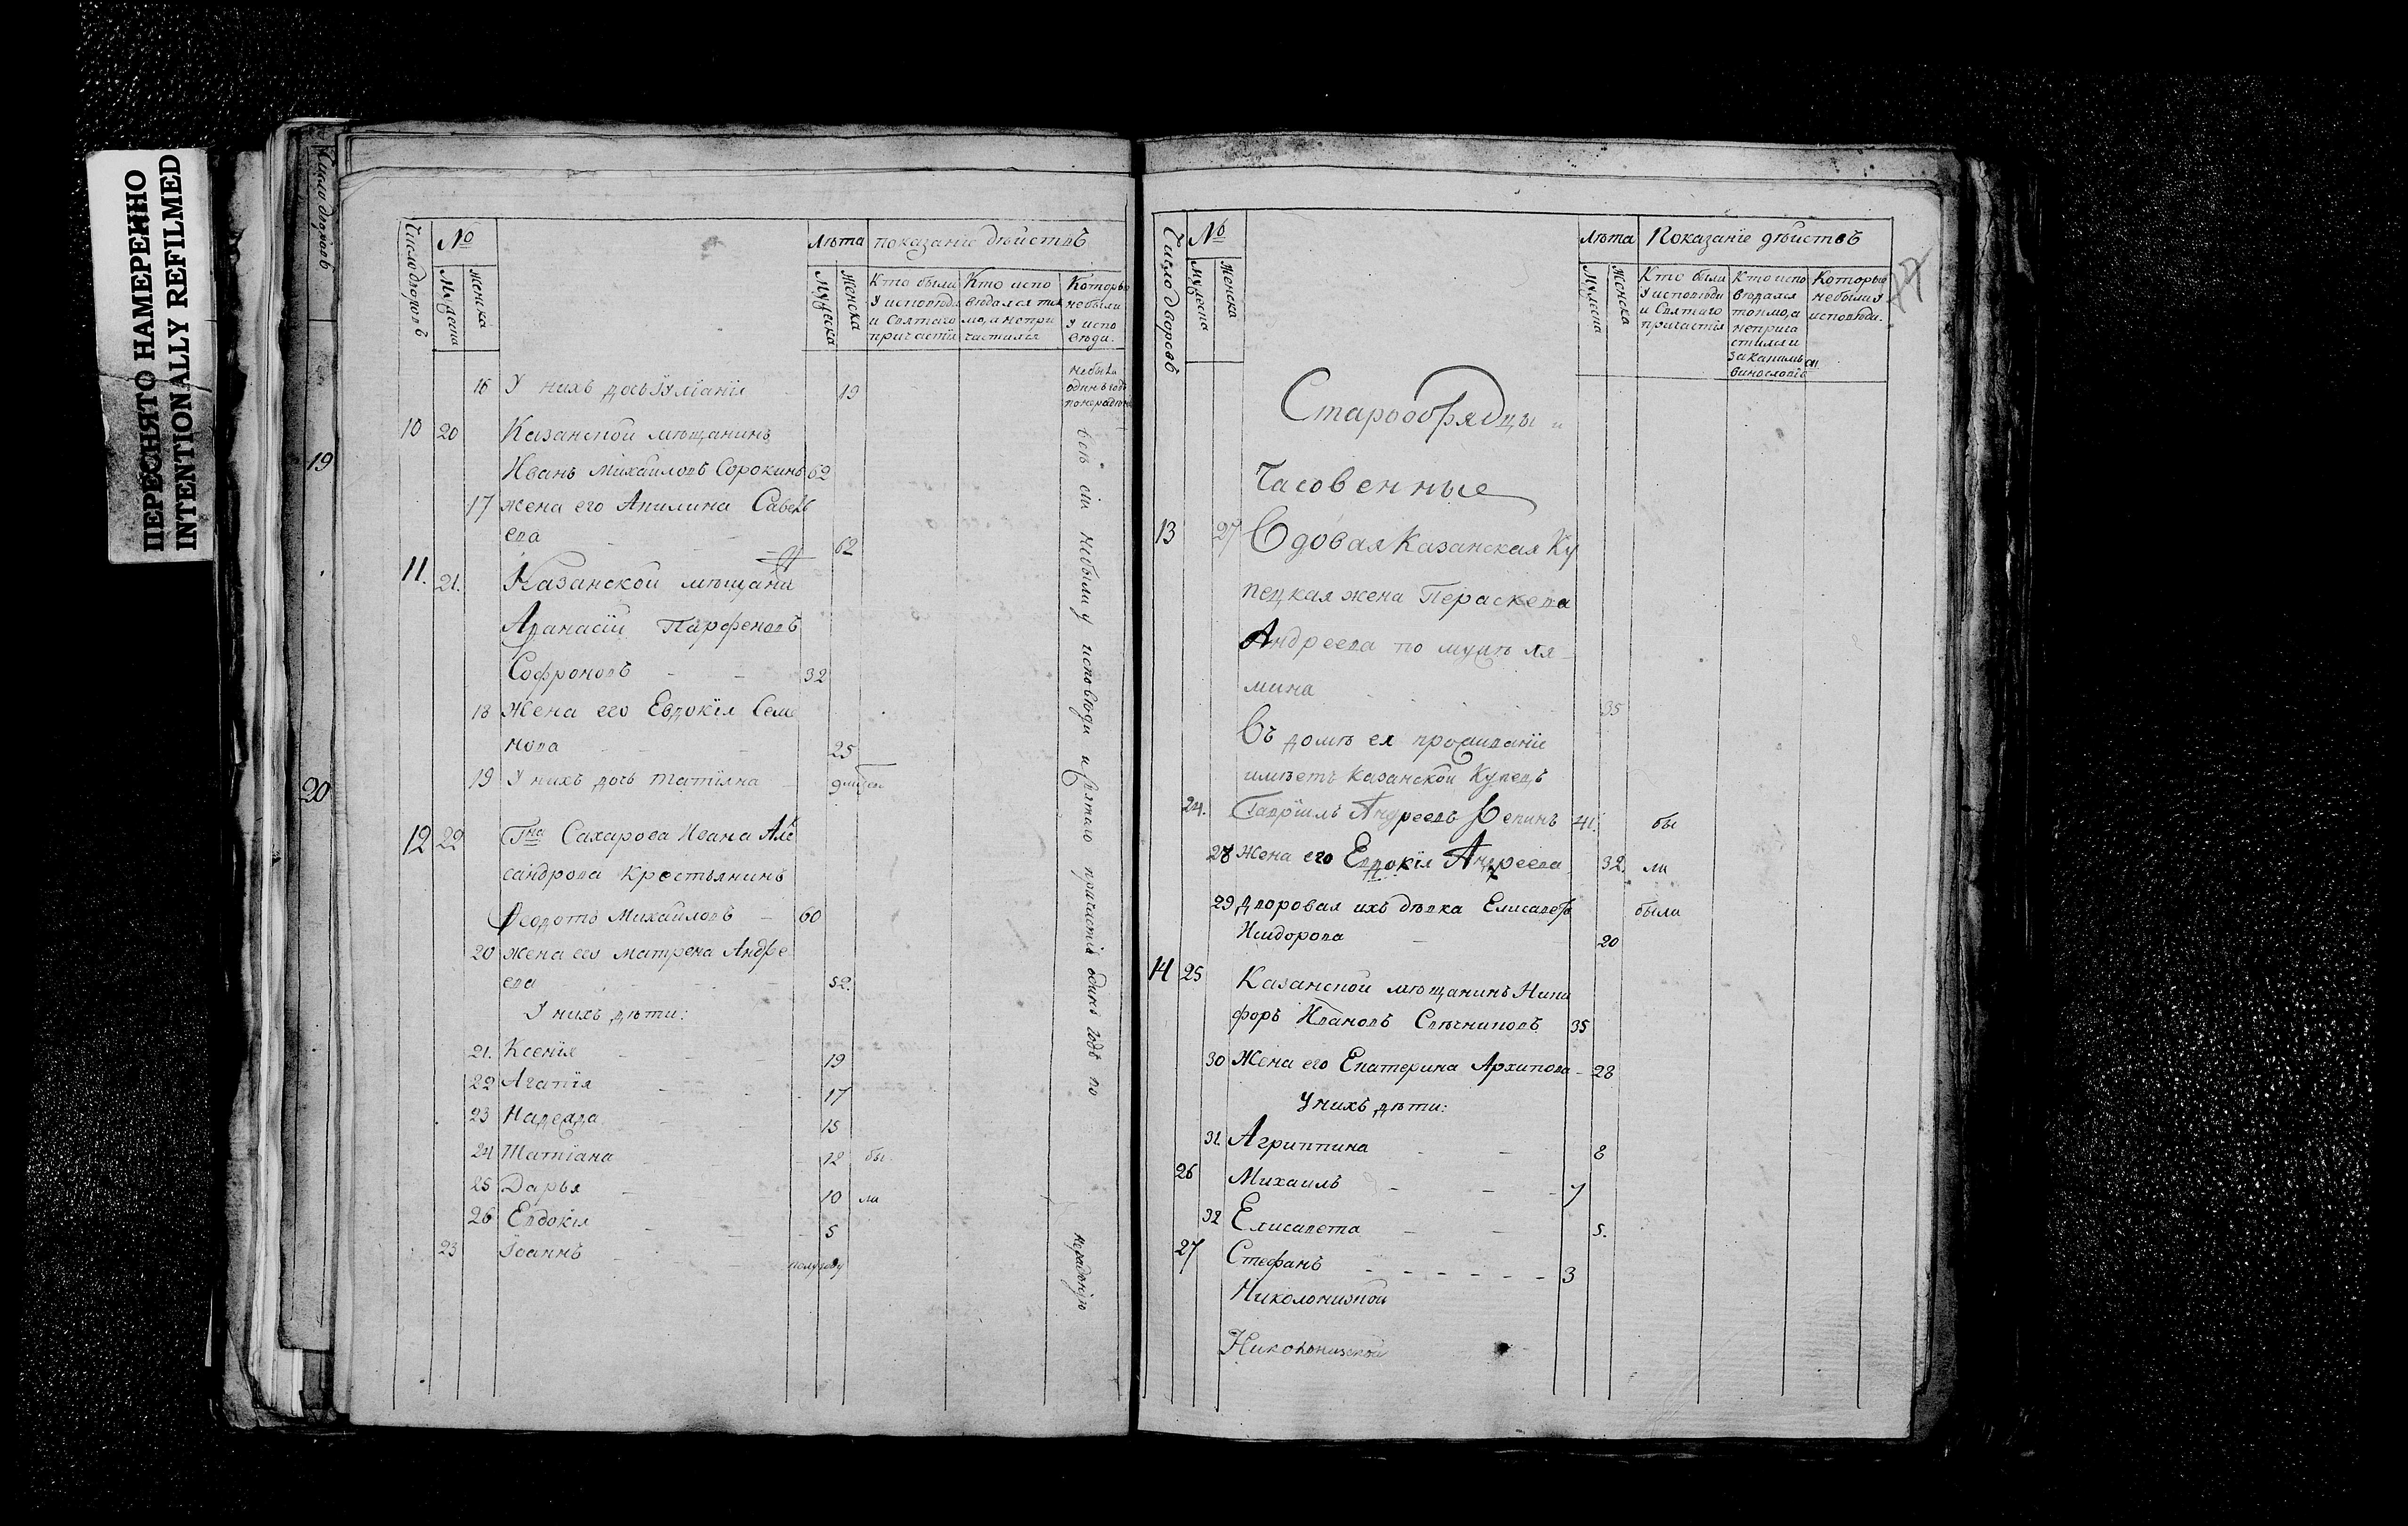 ПЕРЕСНЯТО НАМЕРЕННО
INTENTIONALLY REFILMED
Число дворовъ
19
20
Число дворовъ
№
Мужеска
Женска
Лѣта
показаніе дѣиствъ
Мужеска
Женска
Кто были у исповѣди и Святаго причастія
Кто испо вѣдался ток мо, а непри частился
Которые небыли у испо вѣди.
16 У нихъ дочь Іуліанія 19 небыла одинъ годъ понерадѣнію
10 20 Казанской мѣщанинъ
Иванъ Михаиловъ Сорокинъ 62
17 жена его Акилина Савель
ева 62
11. 21. Казанской мѣщанинъ
Афанасіи Парфеновъ
Софроновъ 32
18 Жена его Евдокія Семе
нова 25
19 У нихъ дочь Татіяна
12 22 Гна Сахарова Ивана Алек
сандрова Крестьянинъ
Ѳеодотъ Михаиловъ 60
20 жена его Матрена Андре
ева 52.
У нихъ дѣти:
21. Ксенія 19
22 Агапія 17
23 Надежда 15
24 Татіана 12 бы
25 Дарья 10 ли
26 Евдокія 5
23 Іоаннъ полугоду
всѣ сіи небыли у исповѣди и Святаго причастія одинъ годъ по нерадѣнію
Число дворовъ
№
Мужеска
Женска
Лѣта
Показаніе дѣиствъ
Мужеска
Женска
Кто были у исповѣди и Святаго причастія
Кто испо вѣдался токмо, а неприча стился и за какимъ винословіе
Которые небыли у исповѣди.
77
Старообрядцы и
Часовенные
13 27 Вдовая Казанская Ку
пецкая жена Параскева
Андреева по мужѣ Ля
мина 35
Въ домѣ ея проживаніе
имѣетъ Казанской Купецъ
24. Гавріилъ Андреевъ 41. бы
28 Жена его Евдокія Андреева 32. ли
29 Дворовая ихъ дѣвка Елисавеѳа была
Исидорова 20
14 25 Казанской мѣщанинъ Ники
форъ Ивановъ Свѣчниковъ 35
30 Жена его Екатерина Архипова 28
У нихъ дѣти:
31. Агриппина 8
26 Михаилъ 7
32 Елисавета 5.
27 Стефанъ 3
Николонизкой
Николонизской